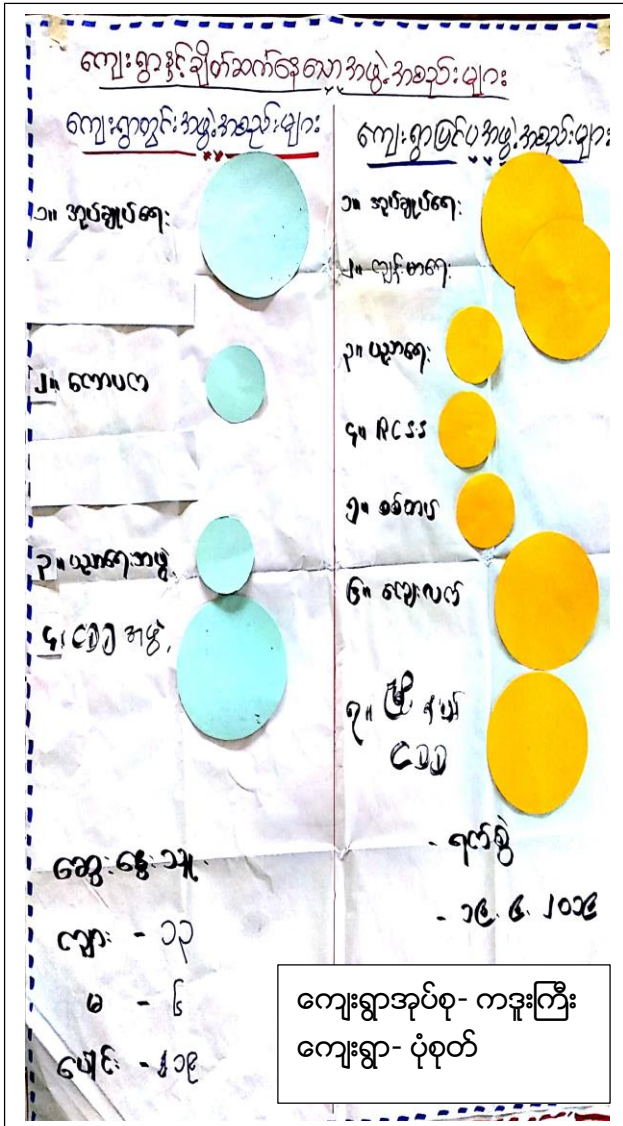 ကျေးရွာနှင့်ချိတ်ဆက်နေသောအဖွဲ့အစည်းများ
ကျေးရွာတွင်းအဖွဲ့အစည်းများ
၁။ အုပ်ချုပ်ရေး
၂။ ကောပက
၃။ ပညာရေးအဖွဲ့
၄။ CDD အဖွဲ့
ဆွေးနွေးသူ
ကျား - ၁၃
မ - ၆
ပေါင်း - ၁၉
ကျေးရွာပြင်ပအဖွဲ့အစည်းများ
၁။ အုပ်ချုပ်ရေး
၂။ ကျန်းမာရေး
၃။ ပညာရေး
၄။ RCSS
၅။ စစ်တပ်
၆။ ကျေးလက်
၇။ မြို့နယ်
CDD
- ရက်စွဲ
- ၁၉. ၆. ၂၀၁၉
ကျေးရွာအုပ်စု- ကဒူးကြီး
ကျေးရွာ- ပုံစုတ်